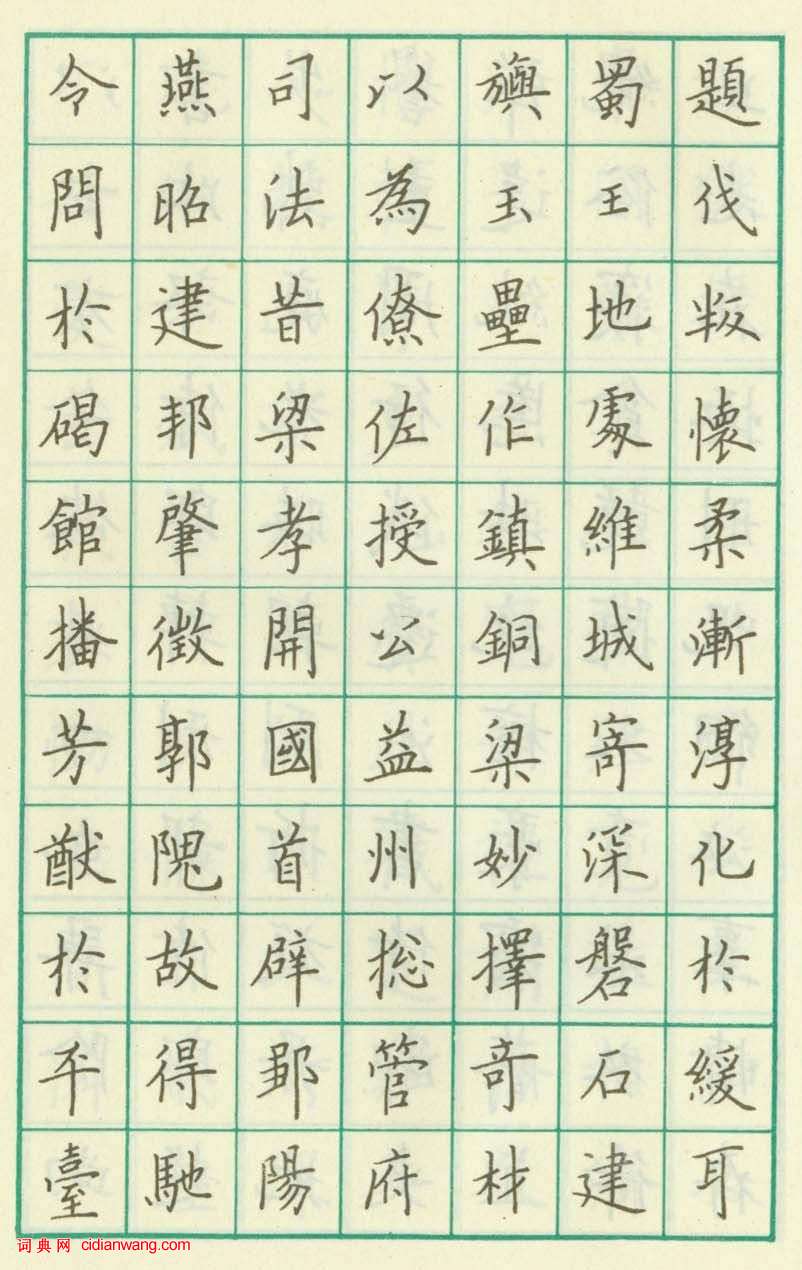 題伐叛懷柔漸淳化於緩耳
蜀王地處維城寄深磐石建
旟玉壘作鎮銅梁妙擇奇材
以為僚佐授公益州總管府
司法昔梁孝開國首辟鄒陽
燕昭建邦肇徵郭隗故得馳
令問於碣館播芳猷於平臺
词典网 cidianwang.com